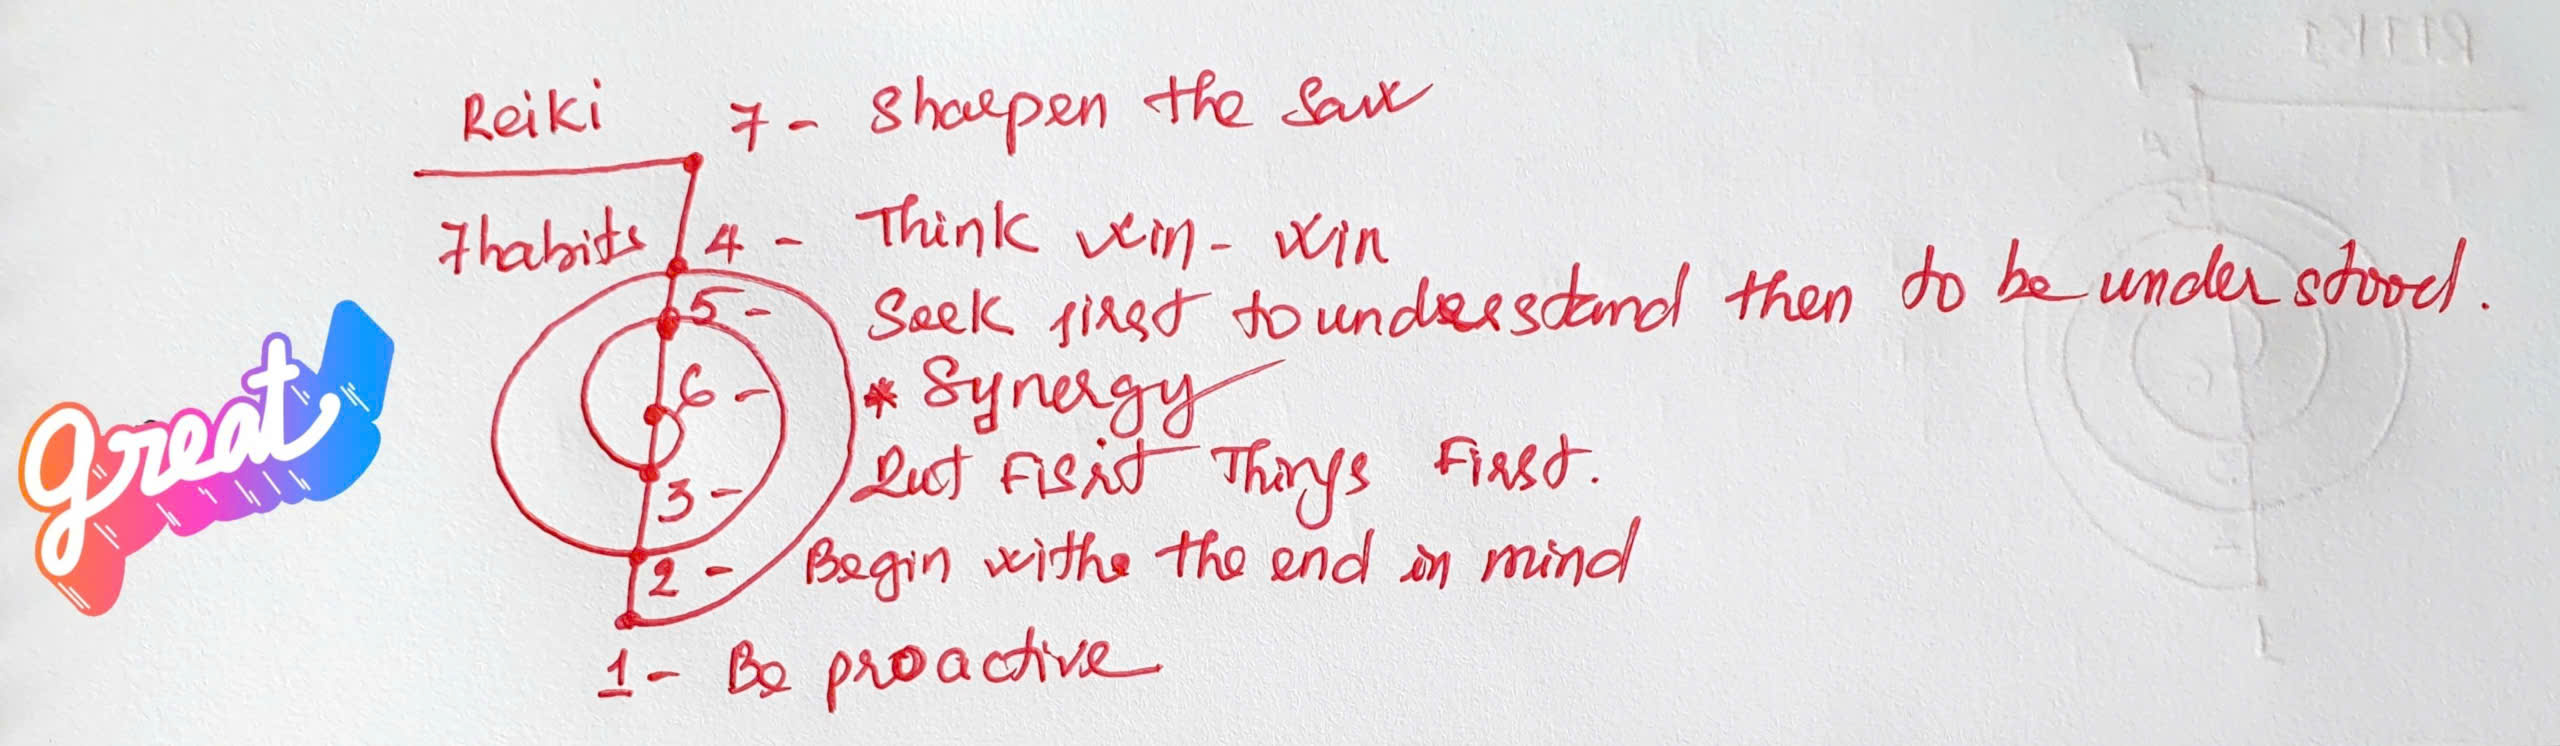 Reiki 7- Sharpen the Saw
7habits 4- Think win-win
5- Seek first to understand then to be understood.
6- * Synergy
3- Put First Things First.
2- Begin withe the end in mind
1- Be proactive
great